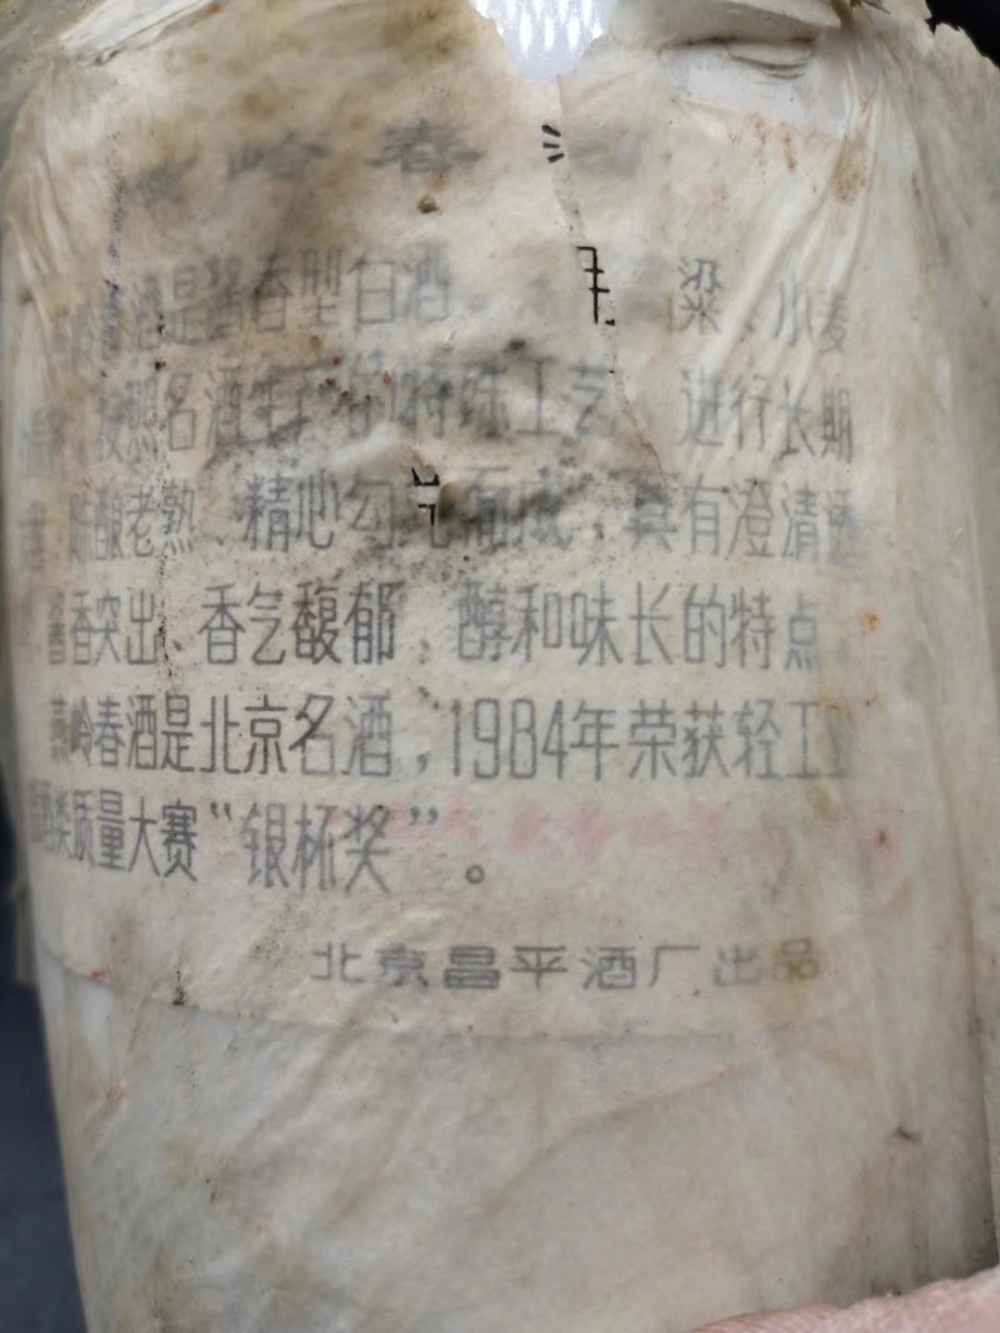 岭春酒
春酒是酱香型白酒 用 粱、小麦
按照名酒生产的特殊工艺 进行长期
贮酿老熟、精心勾兑而成,具有澄清透
酱香突出、香气馥郁、醇和味长的特点
燕岭春酒是北京名酒,1984年荣获轻工业
酒类质量大赛“银杯奖”。
北京昌平酒厂出品